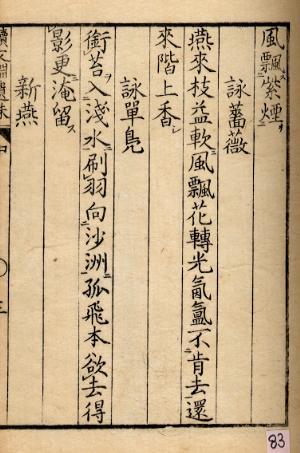 風飄紫煙
詠薔薇
燕來枝益軟風飄花轉光氤氳不肯去還
來階上香
詠單鳧
銜苔入淺水刷羽向沙洲孤飛本欲去得
影更淹留
新燕
中
三
83